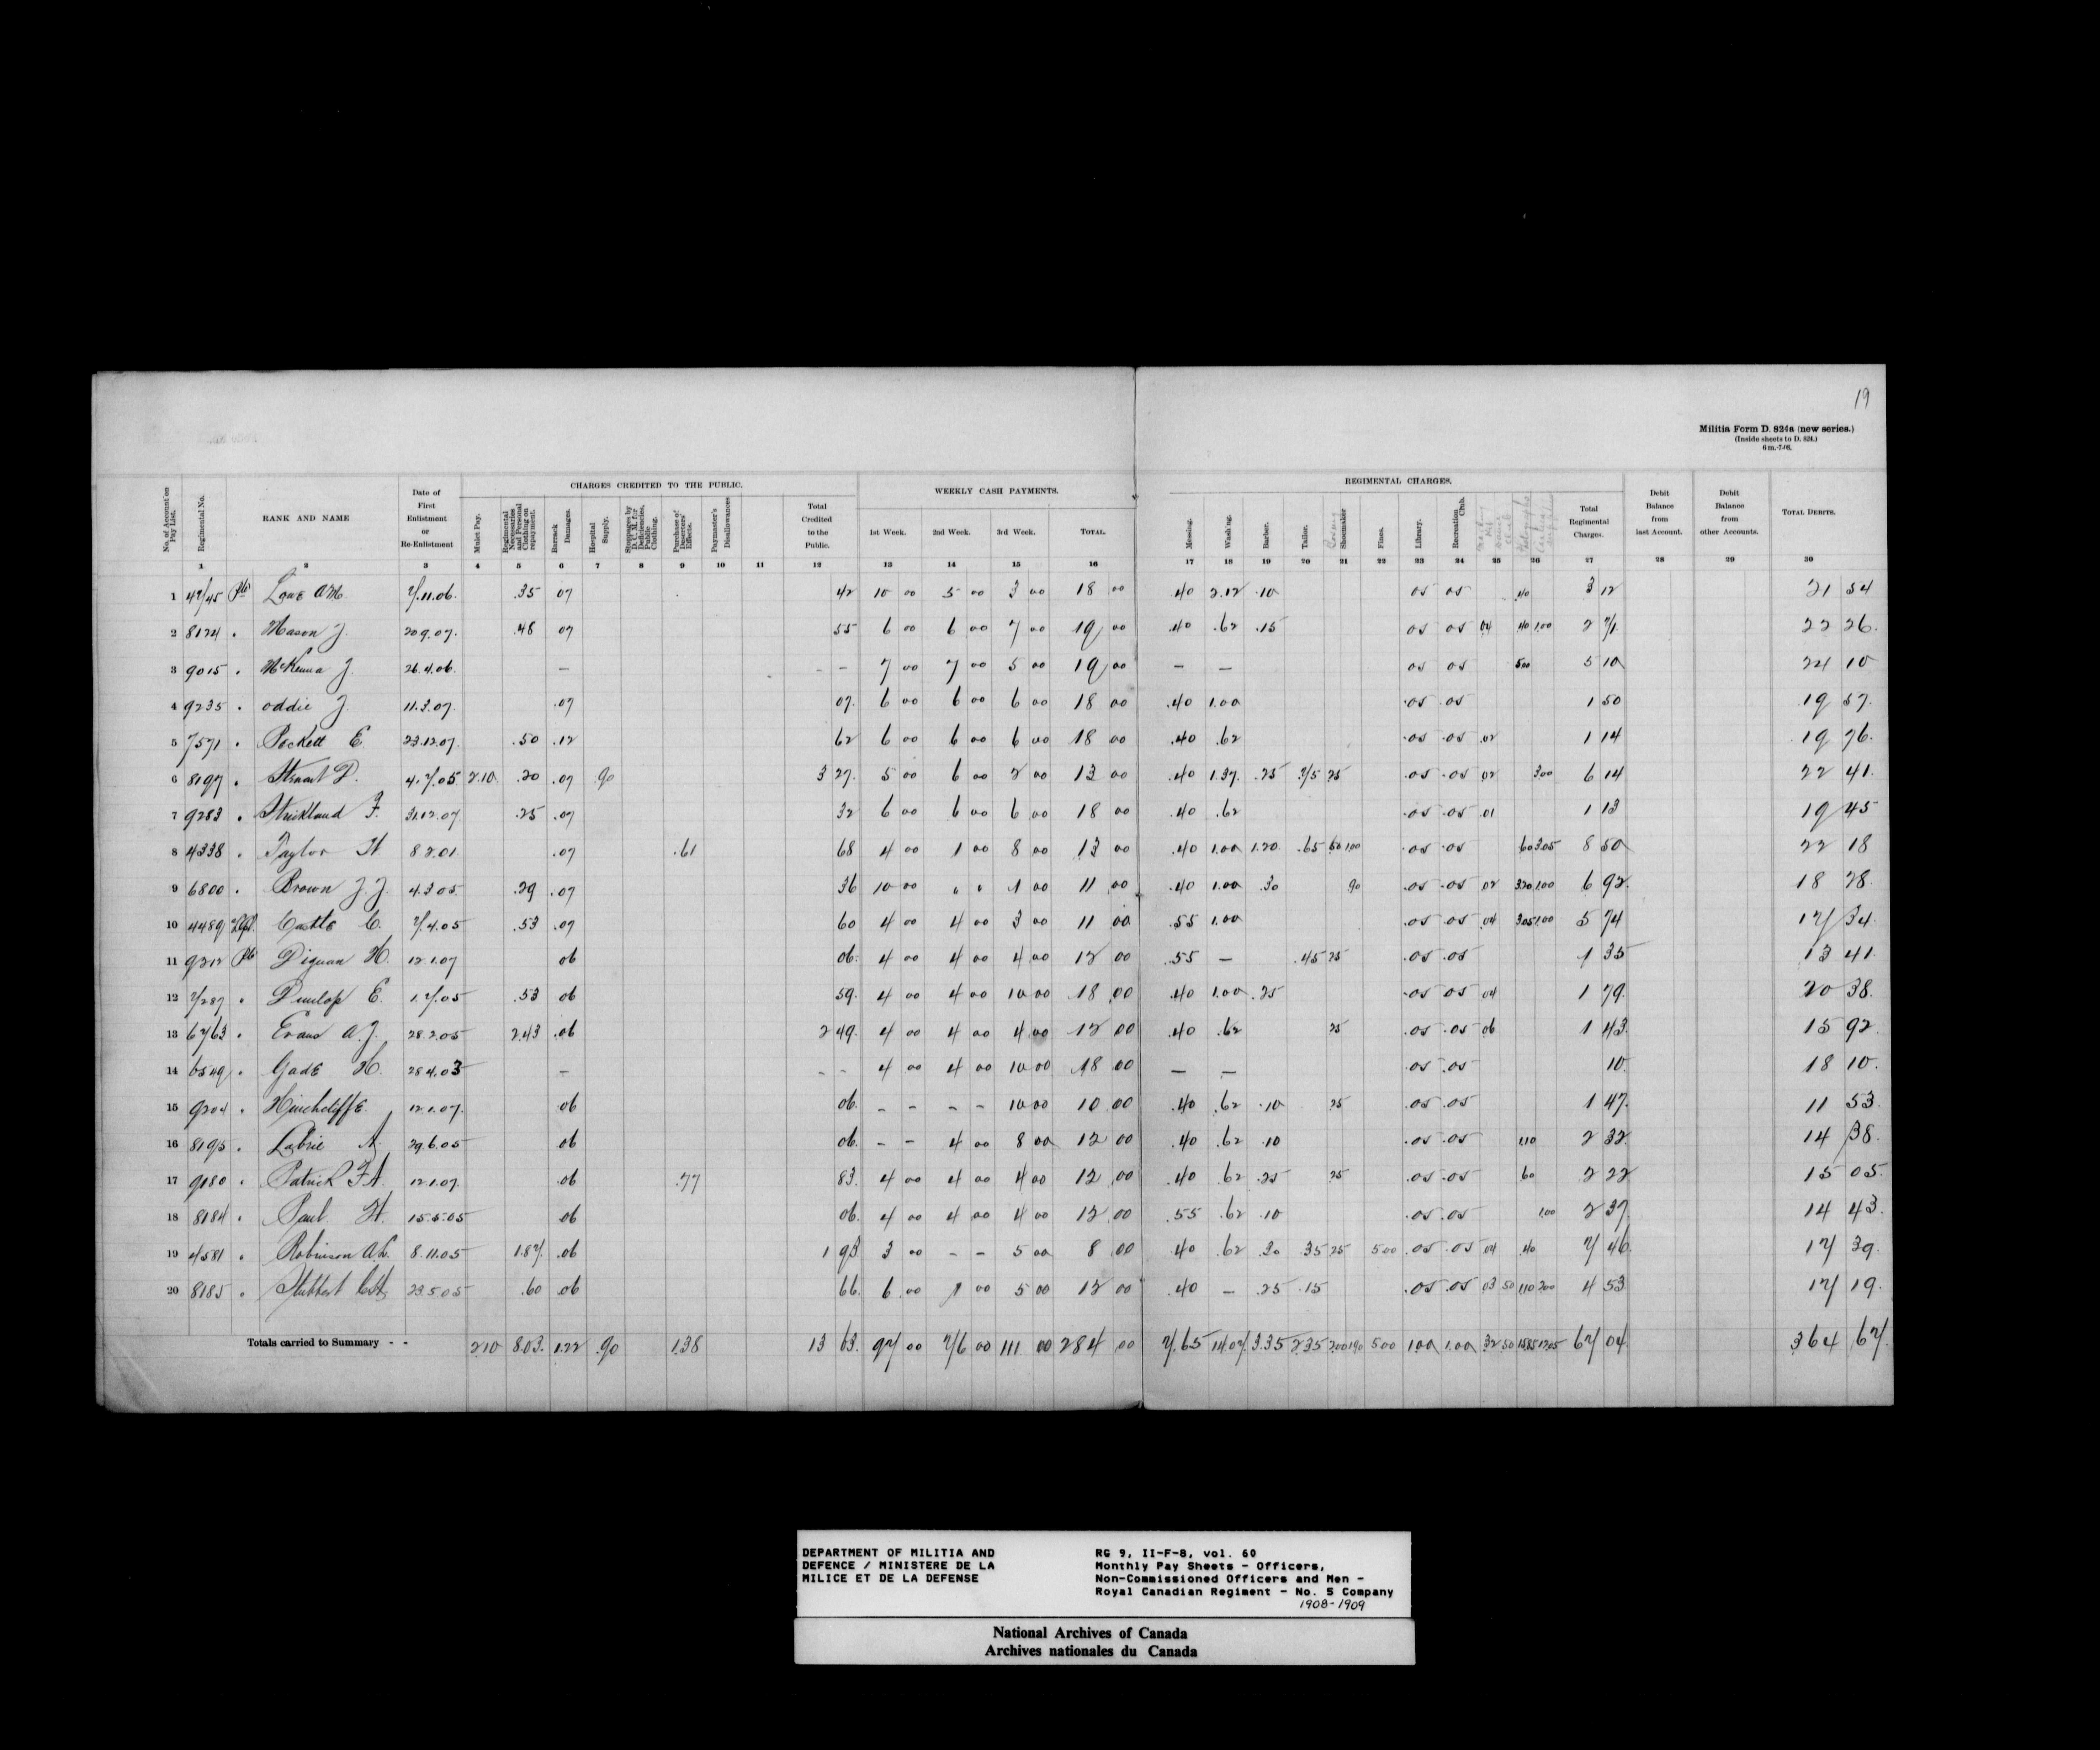 19
Militia Form D. 824a (new series.)
(Inside sheets to D. 824.)
6 m.-7-08.
CHARGES CREDITED TO THE PUBLIC. WEEKLY CASH PAYMENTS. REGIMENTAL CHARGES.
No. of Account on Pay List. Regimental No. RANK AND NAME Date of First Enlistment or Re-Enlistment Mulct Pay. Regimental Necessaries and Personal Clothing on repayment. Barrack Damages. Hospital Supply. Stoppages by D.C.M. for Deficiencies, Public Clothing. Purchase of Deserters' Effects. Paymaster's Disallowances Total Credited to the Public. 1st Week. 2nd Week. 3rd Week. TOTAL. Messing. Washing. Barber. Tailor. Shoemaker Fines. Library. Recreation Club. Total Regimental Charges. Debit Balance from last Account. Debit Balance from other Accounts. TOTAL DEBITS.
1 2 3 4 5 6 7 8 9 10 11 12 13 14 15 16 17 18 19 20 21 22 23 24 25 26 27 28 29 30
1 4745 Pte Lane A.M. 7.11.06. .35 07 42 10 00 5 00 3 00 18 00 .40 2.12 .10 05 05 40 3 12 21 54
2 8124 " Mason J. 20.9.07. .48 07 55 6 00 6 00 7 00 19 00 .40 .62 .15 05 05 04 40 1.00 2 71 22 26
3 9015 " McKenna J. 26.4.06. – – – 7 00 7 00 5 00 19 00 – – 05 05 5 00 5 10 24 10
4 9235 " Oddie J. 11.3.07. .07 07 6 00 6 00 6 00 18 00 .40 1.00 .05 .05 1 50 19 57
5 7571 " Pockett E. 23.12.07. .50 .12 62 6 00 6 00 6 00 18 00 .40 .62 .05 .05 .02 1 14 19 76
6 8197 " Stewart D. 4.7.05 2.10 .20 .07 .90 3 27 5 00 6 00 2 00 13 00 .40 1.37 .25 .75 25 .05 .05 02 3 00 6 14 22 41
7 9283 " Strickland F. 31.12.07. .25 .07 32 6 00 6 00 6 00 18 00 .40 .62 .05 .05 .01 1 13 19 45
8 4338 " Taylor H. 8.2.01. .07 .61 68 4 00 1 00 8 00 13 00 .40 1.00 1.20 .65 50 1.00 .05 .05 60 3.05 8 50 22 18
9 6800 " Brown J.J. 4.3.05. .29 .07 36 10 00 " " 1 00 11 00 .40 1.00 .30 90 .05 .05 02 3.20 1.00 6 92 18 28
10 4489 Castle C. 7.4.05 .53 .07 60 4 00 4 00 3 00 11 00 .55 1.00 .05 .05 .04 3.05 1.00 5 74 17 34
11 9212 Pte Dignan H. 12.1.07 06 06 4 00 4 00 4 00 12 00 .55 – .45 25 .05 .05 1 35 13 41
12 7287 " Dunlop E. 1.7.05 .53 06 59 4 00 4 00 10 00 18 00 .40 1.00 .25 .05 05 04 1 79 20 38
13 6763 " Evans A.J. 28.2.05 2.43 .06 2 49 4 00 4 00 4 00 12 00 .40 .62 25 .05 .05 06 1 43 15 92
14 6549 " Gade H. 28.4.03 – – – 4 00 4 00 10 00 18 00 – – .05 .05 10 18 10
15 9204 " Hinchcliffe 12.1.07. .06 06 – – – – 10 00 10 00 .40 .62 .10 25 .05 .05 1 47 11 53
16 8195 " Labrie A. 29.6.05 06 06 – – 4 00 8 00 12 00 .40 .62 .10 .05 .05 1.10 2 32 14 38
17 9180 " Patrick F.A. 12.1.07. .06 .77 83 4 00 4 00 4 00 12 00 .40 .62 .25 25 .05 .05 60 2 22 15 05
18 8184 " Paul H. 15.5.05 06 06 4 00 4 00 4 00 12 00 .55 .62 .10 .05 .05 1.00 2 37 14 43
19 4581 " Robinson A.L. 8.11.05 1.87 .06 1 93 3 00 – – 5 00 8 00 .40 .62 .30 .35 25 5 00 .05 .05 04 40 7 46 17 39
20 8185 " 23.5.05 .60 06 66 6 00 1 00 5 00 12 00 .40 – .25 .15 .05 .05 03 50 1.10 2.00 4 53 17 19
Totals carried to Summary - - 2.10 8.03 1.22 .90 1.38 13 63 97 00 76 00 111 00 284 00 7.65 14.07 3.35 2.35 2.00 1.90 5 00 1.00 1.00 .32 .50 15.85 12.05 67 04 364 67
DEPARTMENT OF MILITIA AND
DEFENCE / MINISTERE DE LA
MILICE ET DE LA DEFENSE
RG 9, II-F-8, vol. 60
Monthly Pay Sheets - Officers,
Non-Commissioned Officers and Men -
Royal Canadian Regiment - No. 5 Company
1908-1909
National Archives of Canada
Archives nationales du Canada